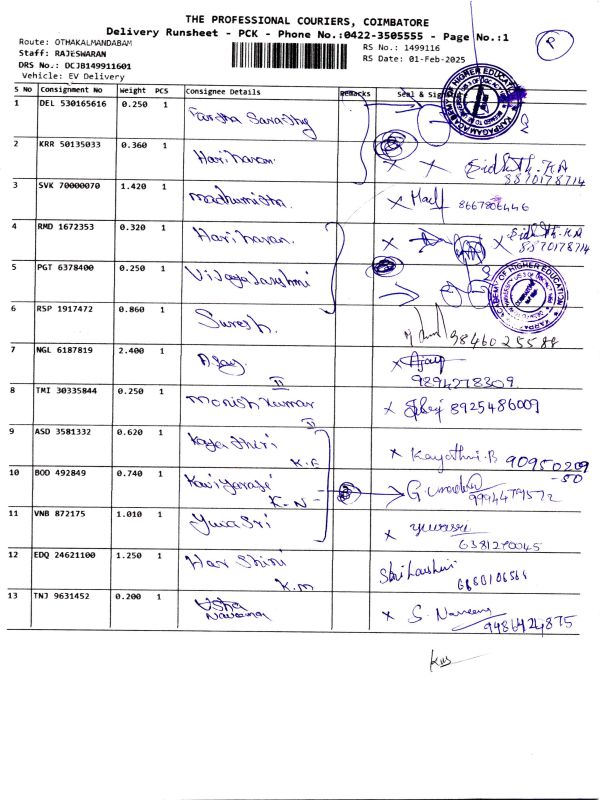 THE PROFESSIONAL COURIERS, COIMBATORE
Delivery Runsheet - PCK - Phone No.:0422-3505555 - Page No.:1
Route: OTHAKALMANDABAM
RS No.: 1499116
Staff: RAJESWARAN
RS Date: 01-Feb-2025
DRS No.: DCJB149911601
Vehicle: EV Delivery
S No Consignment No Weight PCS Consignee Details Remarks Seal &
1 DEL 530165616 0.250 1
2 KRR 50135033 0.360 1 Hariharan
8870178714
3 SVK 70000070 1.420 1 Madhumitha
8667806446
4 RMD 1672353 0.320 1 Hariharan
8870178714
5 PGT 6378400 0.250 1 Vijayalakshmi
6 RSP 1917472 0.860 1 Suresh
9846025588
7 NGL 6187819 2.400 1 Ajay Ajay
9894278309
8 TMI 30335844 0.250 1 Monish Kumar
8925486009
9 ASD 3581332 0.620 1 Kayathiri Kayathri.B
10 BOD 492849 0.740 1 Kaviyarasi
K.N
9994479572
11 VNB 872175 1.010 1 Yuvasri yuvasri
6381270045
12 EDQ 24621100 1.250 1 Hari Shini
K.M
13 TNJ 9631452 0.200 1 Usha
Naveena S. Naveena
9486424875